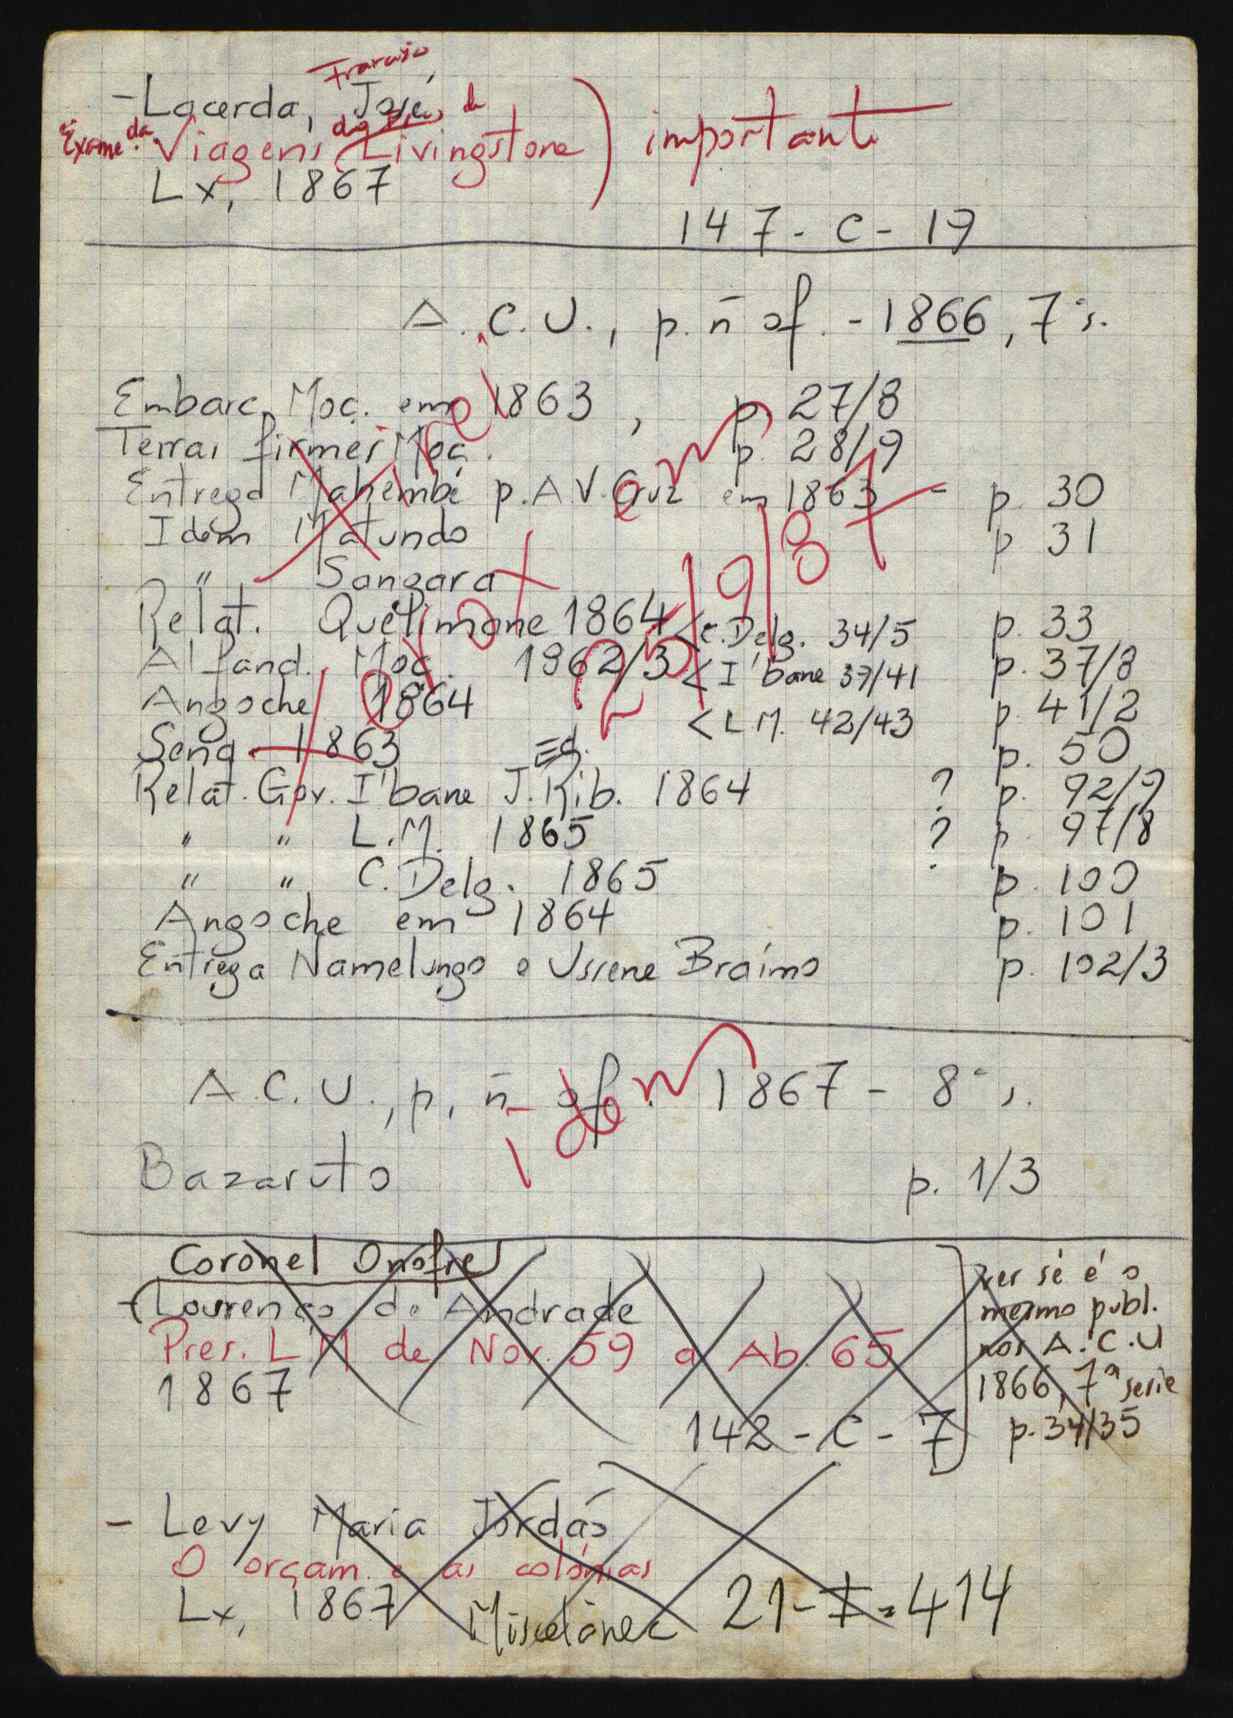 - Lacerda, José
Exame da Viagens Livingstone) importante
Lx, 1867
147 - C - 19
A.C.U., p. ñ of. - 1866, 7ª s.
Embarc. Moç. em 1863, p. 27/8
Terras firmes Moç. p. 28/9
Entrega Matembé p. A.V. Cruz em 1863 - p. 30
Idem Matundo p 31
" Sangara
Relat. Quelimane 1864 p. 33
< C. Delg. 34/5
Alfand. Moç. 1962/3 p. 37/8
< I'bane 37/41
Angoche 1864 p. 41/2
< L M. 42/43
Sena 1863 p. 50
Relat. Gov. I'bane J. Rib. 1864 ? p. 92/9
" " L.M. 1865 ? p 97/8
" " C. Delg. 1865 p. 100
Angoche em 1864 p. 101
Entrega Namelungo e Ussene Braímo p. 102/3
A.C.U., p. ñ of. 1867 - 8ª s.
idem
Bazaruto p. 1/3
Coronel Onofre
- (Lourenço de Andrade
Pres. L'M de Nov. 59 a Ab. 65
1867
142 - C - 7
ver se é o
mesmo publ.
nos A.C.U
1866, 7ª serie
p. 34/35
- Levy Maria Jordão
O orçam. e as colónias
Lx, 1867 Miscelânea 21 - I = 414